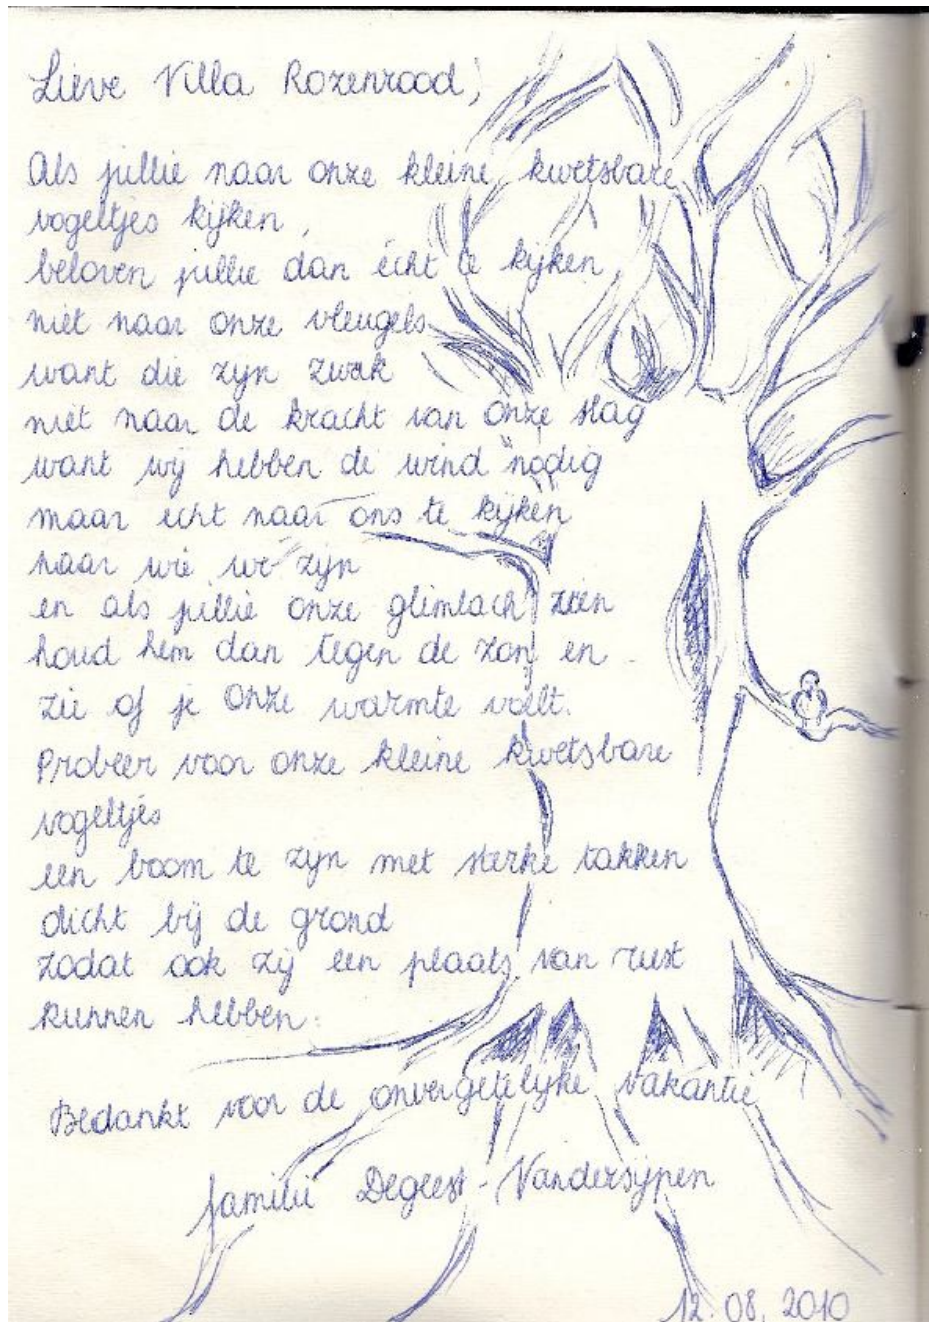 Lieve Villa Rozenrood,
Als jullie naar onze kleine kwetsbare
vogeltjes kijken,
beloven jullie dan écht te kijken,
niet naar onze vleugels
want die zijn zwak
niet naar de kracht van onze slag
want wij hebben de wind nodig
maar echt naar ons te kijken
naar wie we zijn
en als jullie onze glimlach zien
houd hem dan tegen de zon en
zie of je onze warmte voelt.
Probeer voor onze kleine kwetsbare
vogeltjes
een boom te zijn met sterke takken
dicht bij de grond
zodat ook zij een plaats van rust
kunnen hebben.
Bedankt voor de onvergetelijke vakantie
familie Degeest-Vandersijpen
12.08.2010